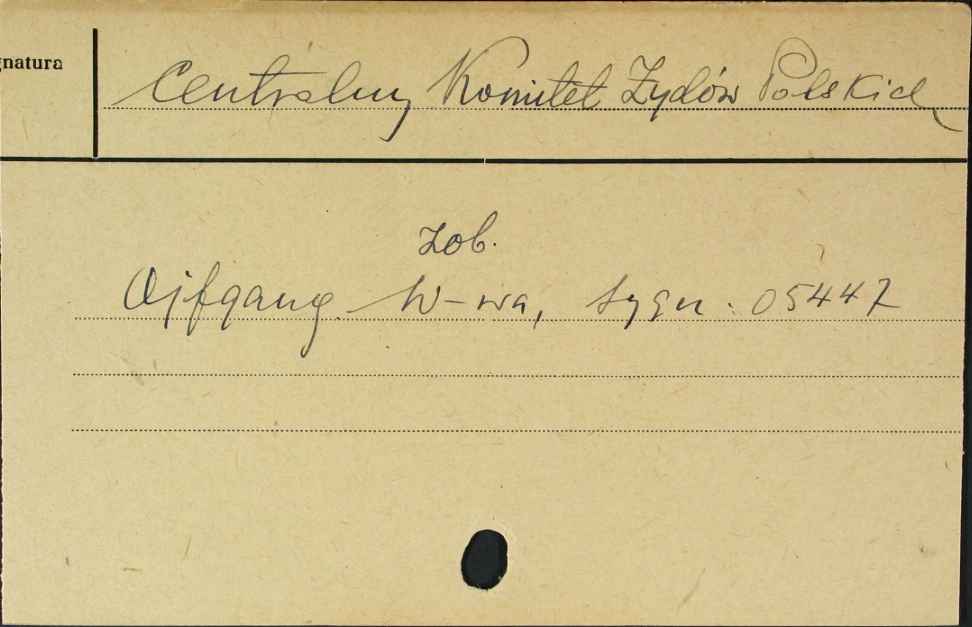 gnatura
Centralny Komitet Żydów Polskich
zob.
Ojfgang. W-wa, sygn. 05447